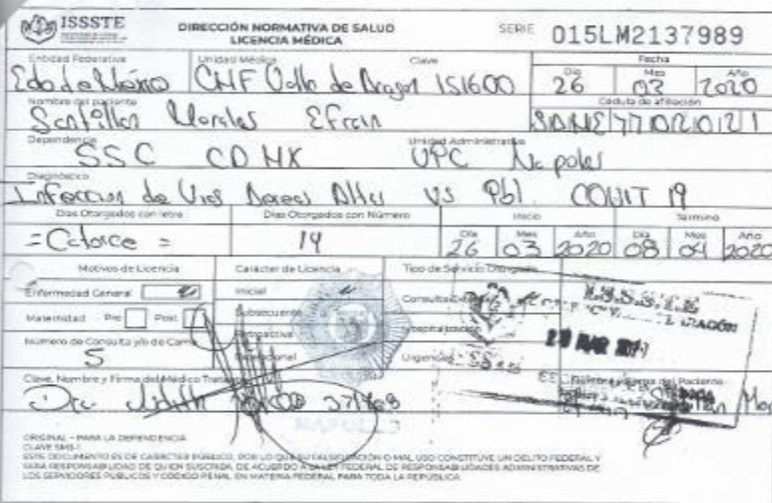 ISSSTE
DIRECCIÓN NORMATIVA DE SALUD
LICENCIA MÉDICA
SERIE 015LM2137989
Entidad Federativa Unidad Médica Clave Fecha
Edo de México CMF Valle de Aragon 151600
Día Mes Año
26 03 2020
Nombre del paciente Cédula de afiliación
Santillan Morales Efrain
Dependencia Unidad Administrativa
SSC CDMX UPC Napoles
Diagnóstico
Infeccion de Vias Aereas Altas VS Pbl. COVIT 19
Días Otorgados con letra Días Otorgados con Número Inicio Término
Día Mes Año Día Mes Año
= Catorce = 14 26 03 2020 08 04 2020
Motivos de Licencia Carácter de Licencia Tipo de Servicio Otorgado
Enfermedad General Inicial Consulta Externa
Maternidad Pre Post Subsecuente Hospitalización
Número de Consulta y/o de Cama Retroactiva
5 Urgencias
Clave, Nombre y Firma del Médico Tratante
Dra. Judith
ORIGINAL - PARA LA DEPENDENCIA
CLAVE SM3-1
ESTE DOCUMENTO ES DE CARÁCTER PÚBLICO, POR LO QUE SU FALSIFICACIÓN O MAL USO CONSTITUYE UN DELITO FEDERAL Y
SERÁ RESPONSABILIDAD DE QUIEN SUSCRIBA, DE ACUERDO A LA LEY FEDERAL DE RESPONSABILIDADES ADMINISTRATIVAS DE
LOS SERVIDORES PÚBLICOS Y CÓDIGO PENAL EN MATERIA FEDERAL PARA TODA LA REPÚBLICA.